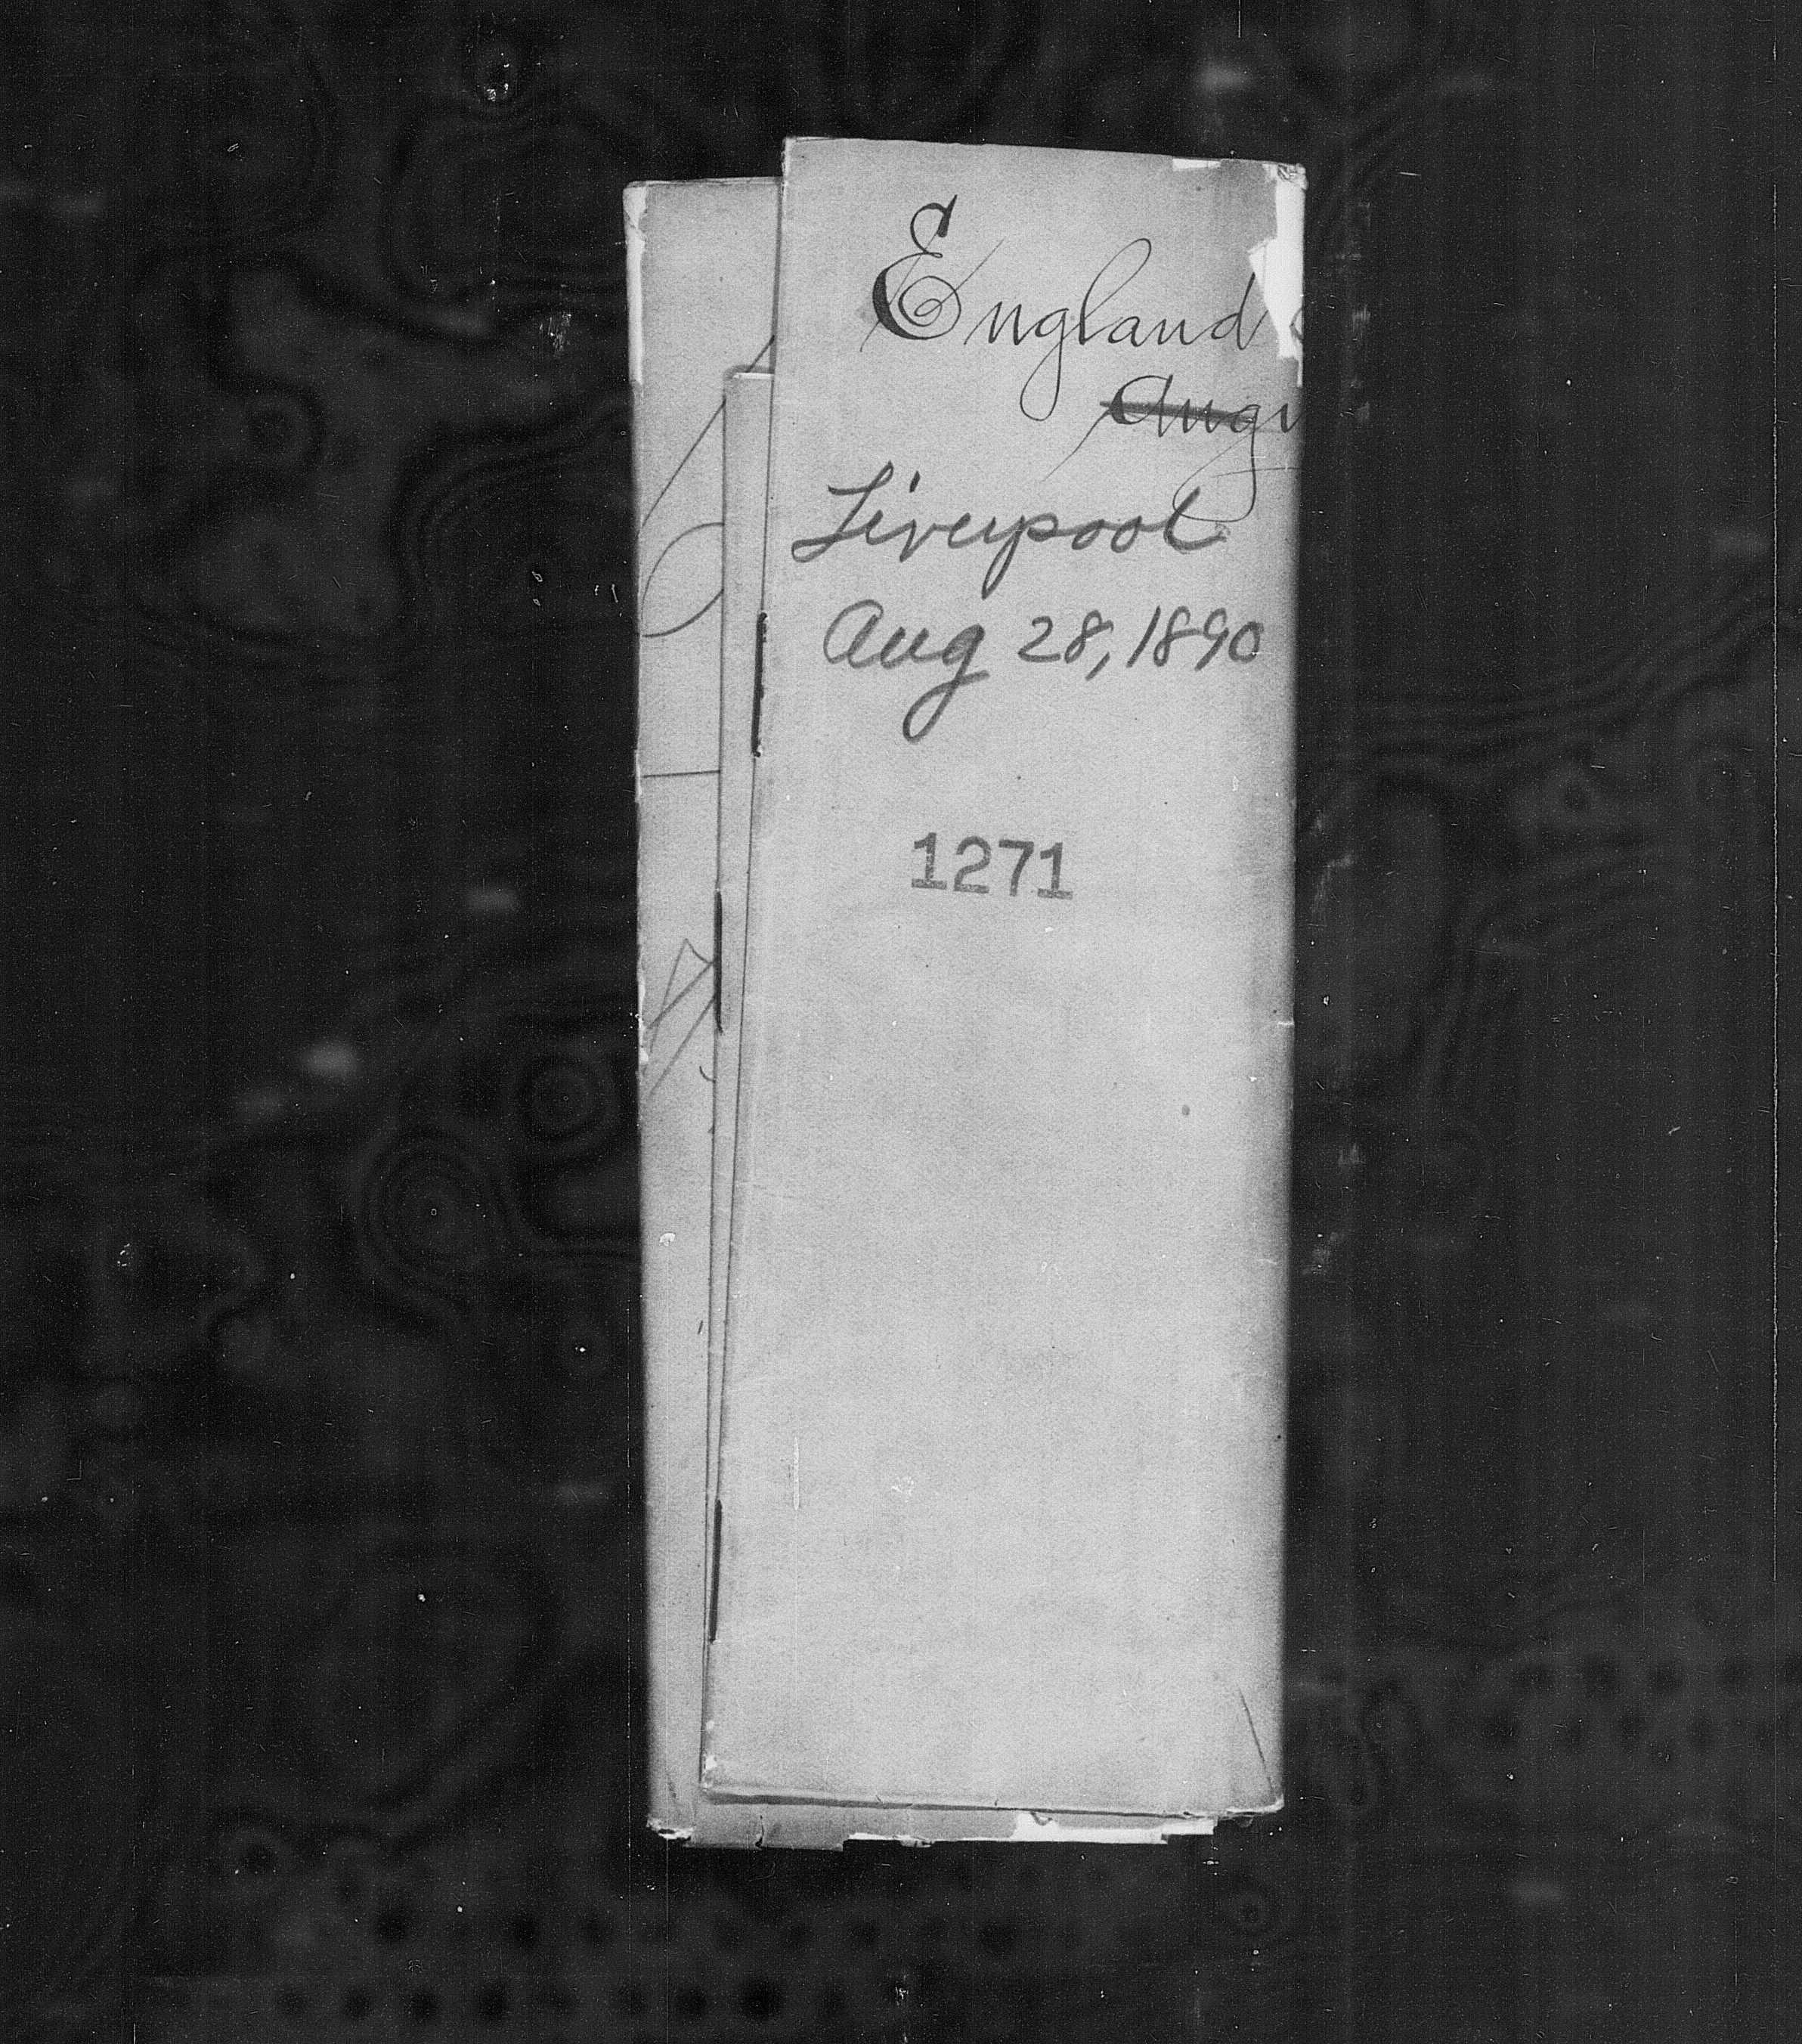 England
Augu
Liverpool
Aug 28, 1890
1271